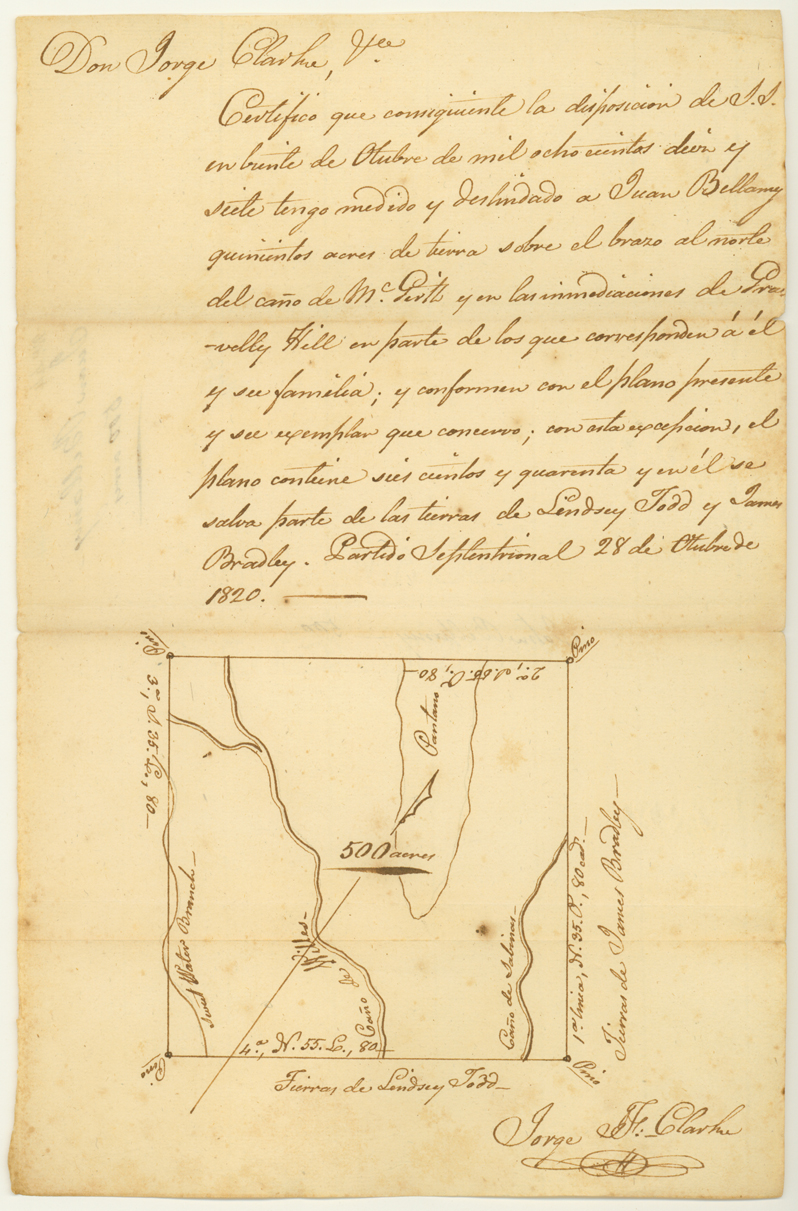 Don Jorge Clarke, &ce
Certifico que consiguiente la disposicion de S.S.
en veinte de Otubre de mil ochocientos diez y
siete tengo medido y deslindado a Juan Bellamy
quinientos acres de tierra sobre el brazo al norte
del caño de Mc. Girtt y en las inmediaciones de Gra-
-velly Hill en parte de los que corresponden á él
y su familia; y conformen con el plano presente
y su exemplar que conservo; con esta excepcion, el
plano contiene seis cientos y quarenta y en él se
salva parte de las tierras de Lindsey Todd y James
Bradley. Partido Septentrional 28 de Otubre de
1820.
Pino
Pino
2a., S. 55 O., 80
3a., S. 35. L., 80
Pantano
500 acres
Sweet Water Branch
Caño de Willes
Caño de Sabinas
1a. linia, N. 35. O., 80 cad.
Tierras de James Bradley
Pino
4a., N. 55. L., 80
Pino
Tierras de Lindsey Todd
Jorge J. F. Clarke